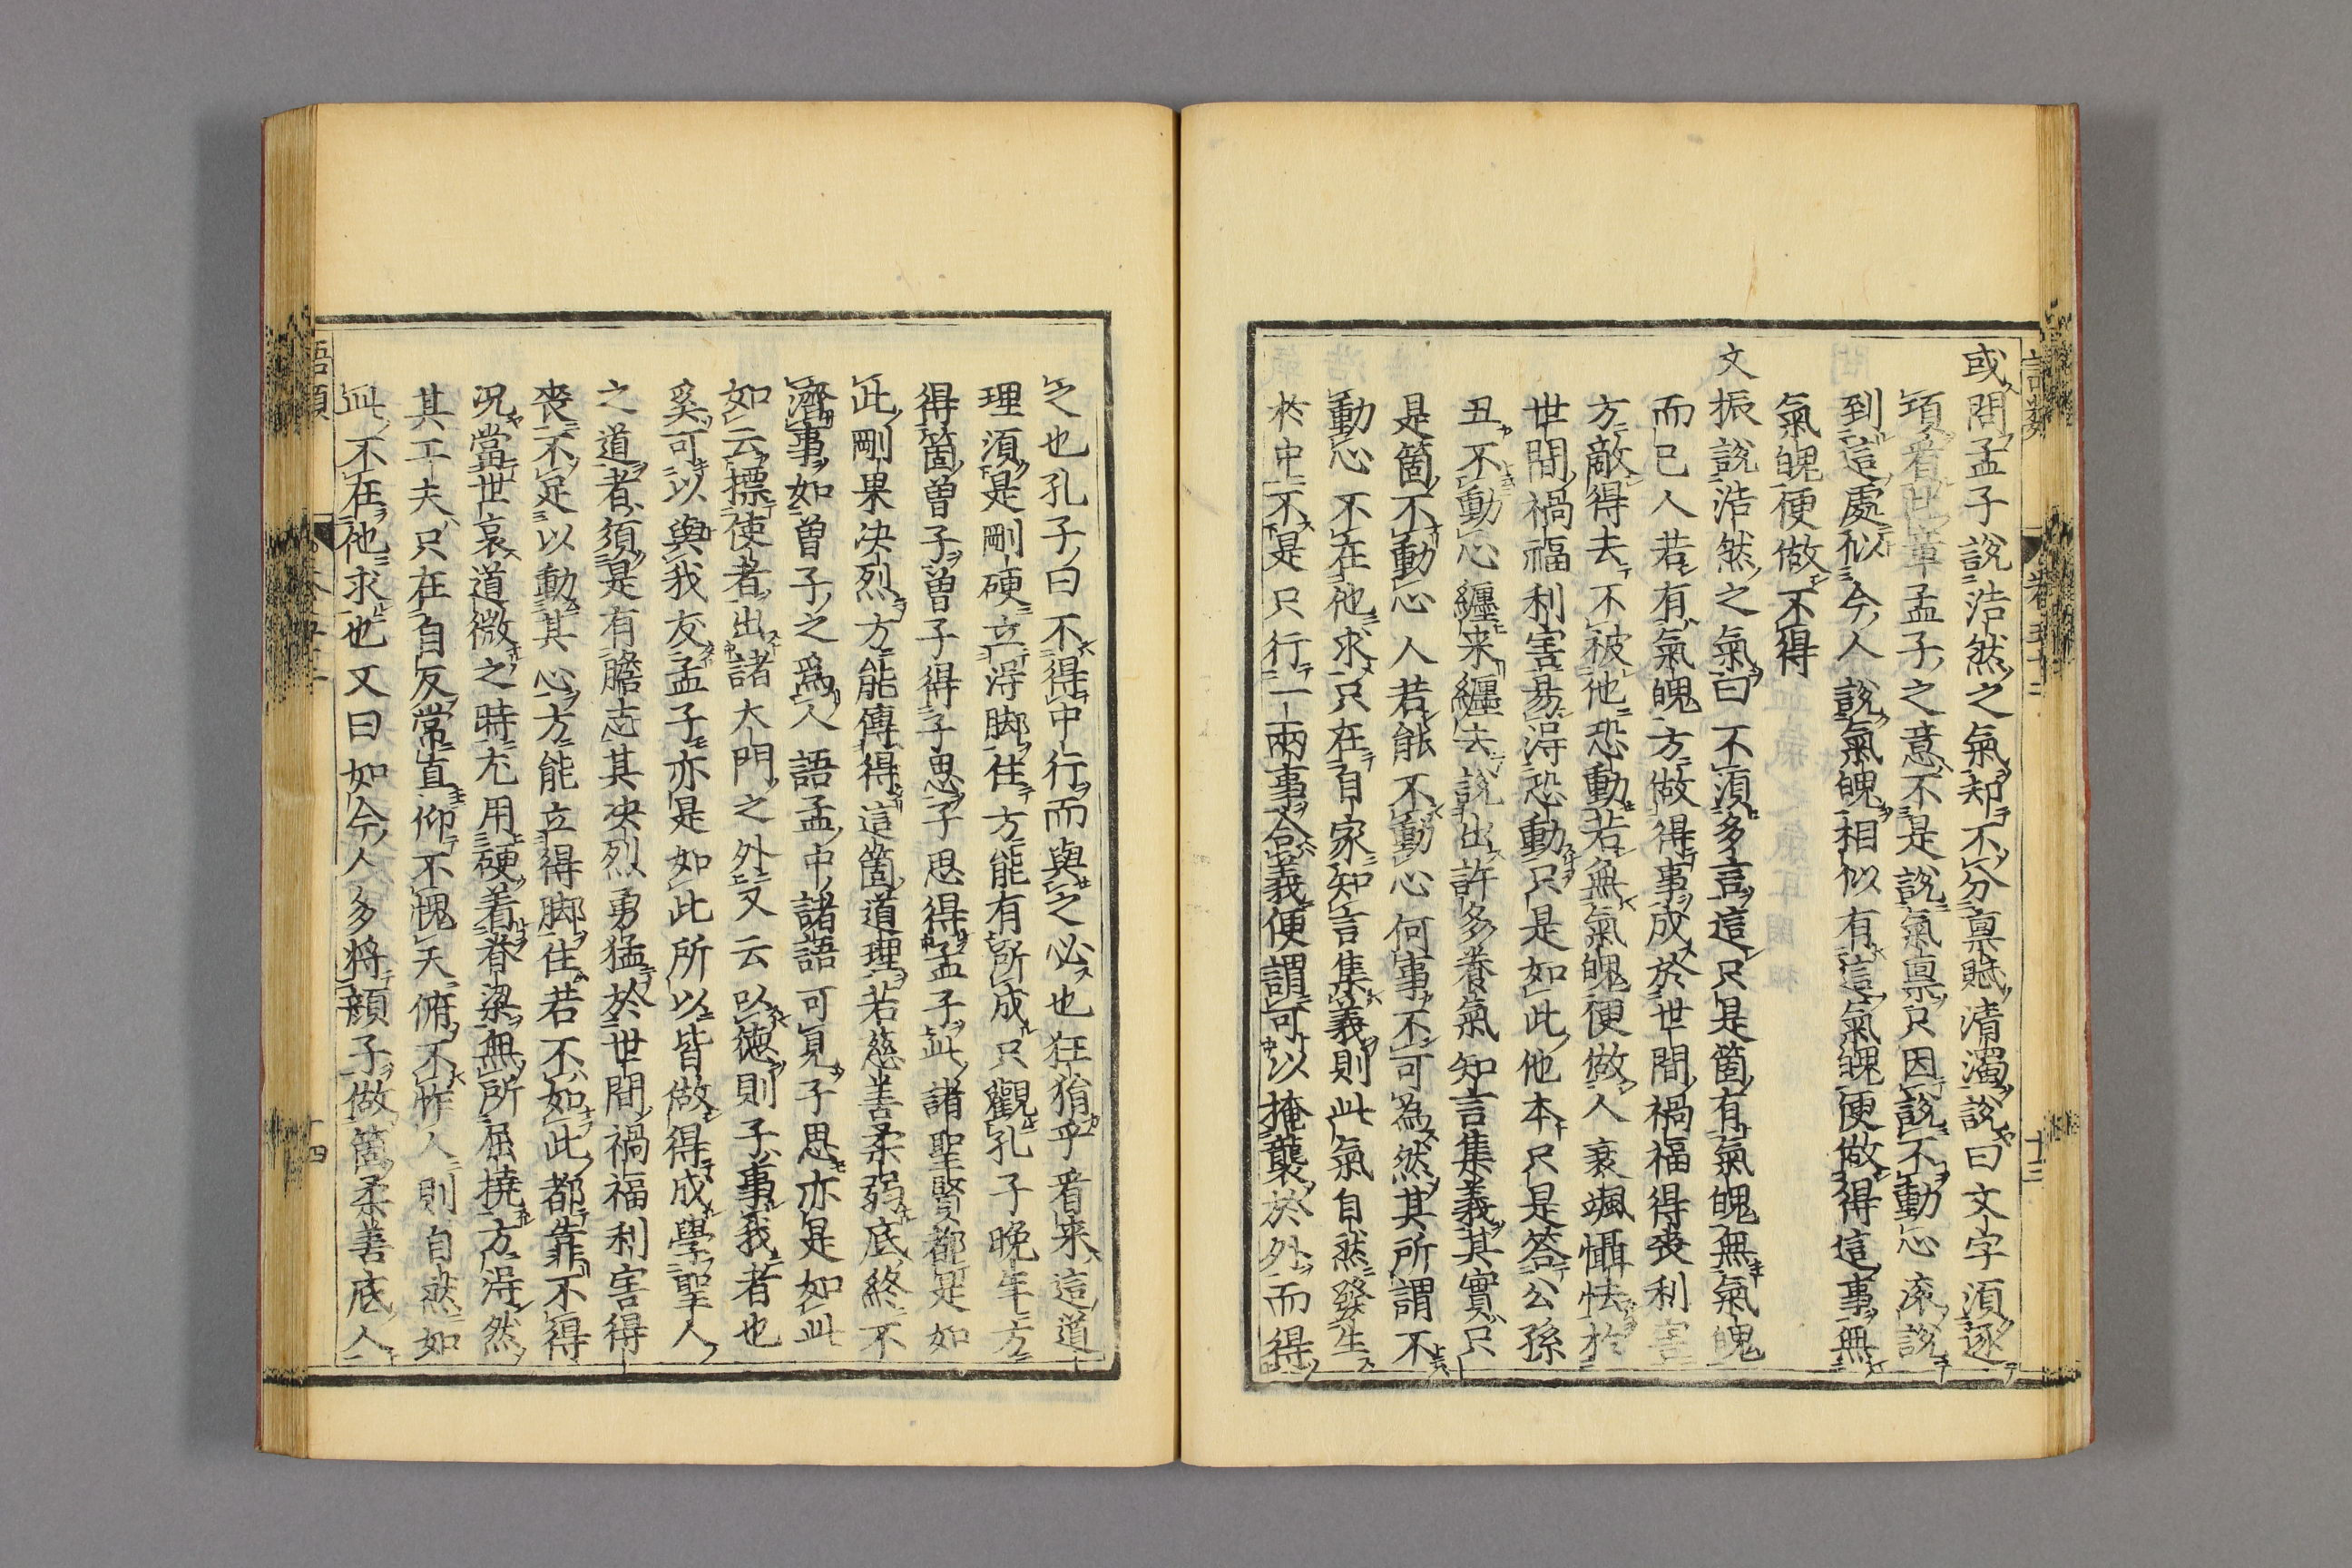 或問孟子說浩然之氣却不分禀賦清濁說曰文字須逐
項看此章孟子之意不是說氣禀只因說不動心滚說
到這處似今人說氣魄相似有這氣魄便做得這事無
氣魄便做不得
文振說浩然之氣曰不須多言這只是箇有氣魄無氣魄
而已人若有氣魄方做得事成於世間禍福得喪利害
方敵得去不被他恐動若無氣魄便做人衰颯懾怯於
世間禍福利害易得恐動只是如此他本只是答公孫
丑不動心纏来纏去說出許多養氣知言集義其實只
是箇不動心人若能不動心何事不可為然其所謂不
動心不在他求只在自家知言集義則此氣自然發生
於中不是只行一兩事合義便謂可以掩襲於外而得
之也孔子曰不得中行而與之必也狂狷乎看来這道
理須是剛硬立得脚住方能有所成只觀孔子晚年方
得箇曽子曽子得子思子思得孟子此諸聖賢都是如
此剛果决烈方能傳得這箇道理若慈善柔弱底終不
濟事如曽子之為人語孟中諸語可見子思亦是如此
如云摽使者出諸大門之外又云以德則子事我者也
奚可以與我友孟子亦是如此所以皆做得成學聖人
之道者須是有膽志其决烈勇猛於世間禍福利害得
喪不足以動其心方能立得脚住若不如此都靠不得
况當世衰道微之時尤用硬着脊梁無所屈撓方得然
其工夫只在自反常直仰不愧天俯不怍人則自然如
此不在他求也又曰如今人多将顔子做箇柔善底人
語類
十四
十三